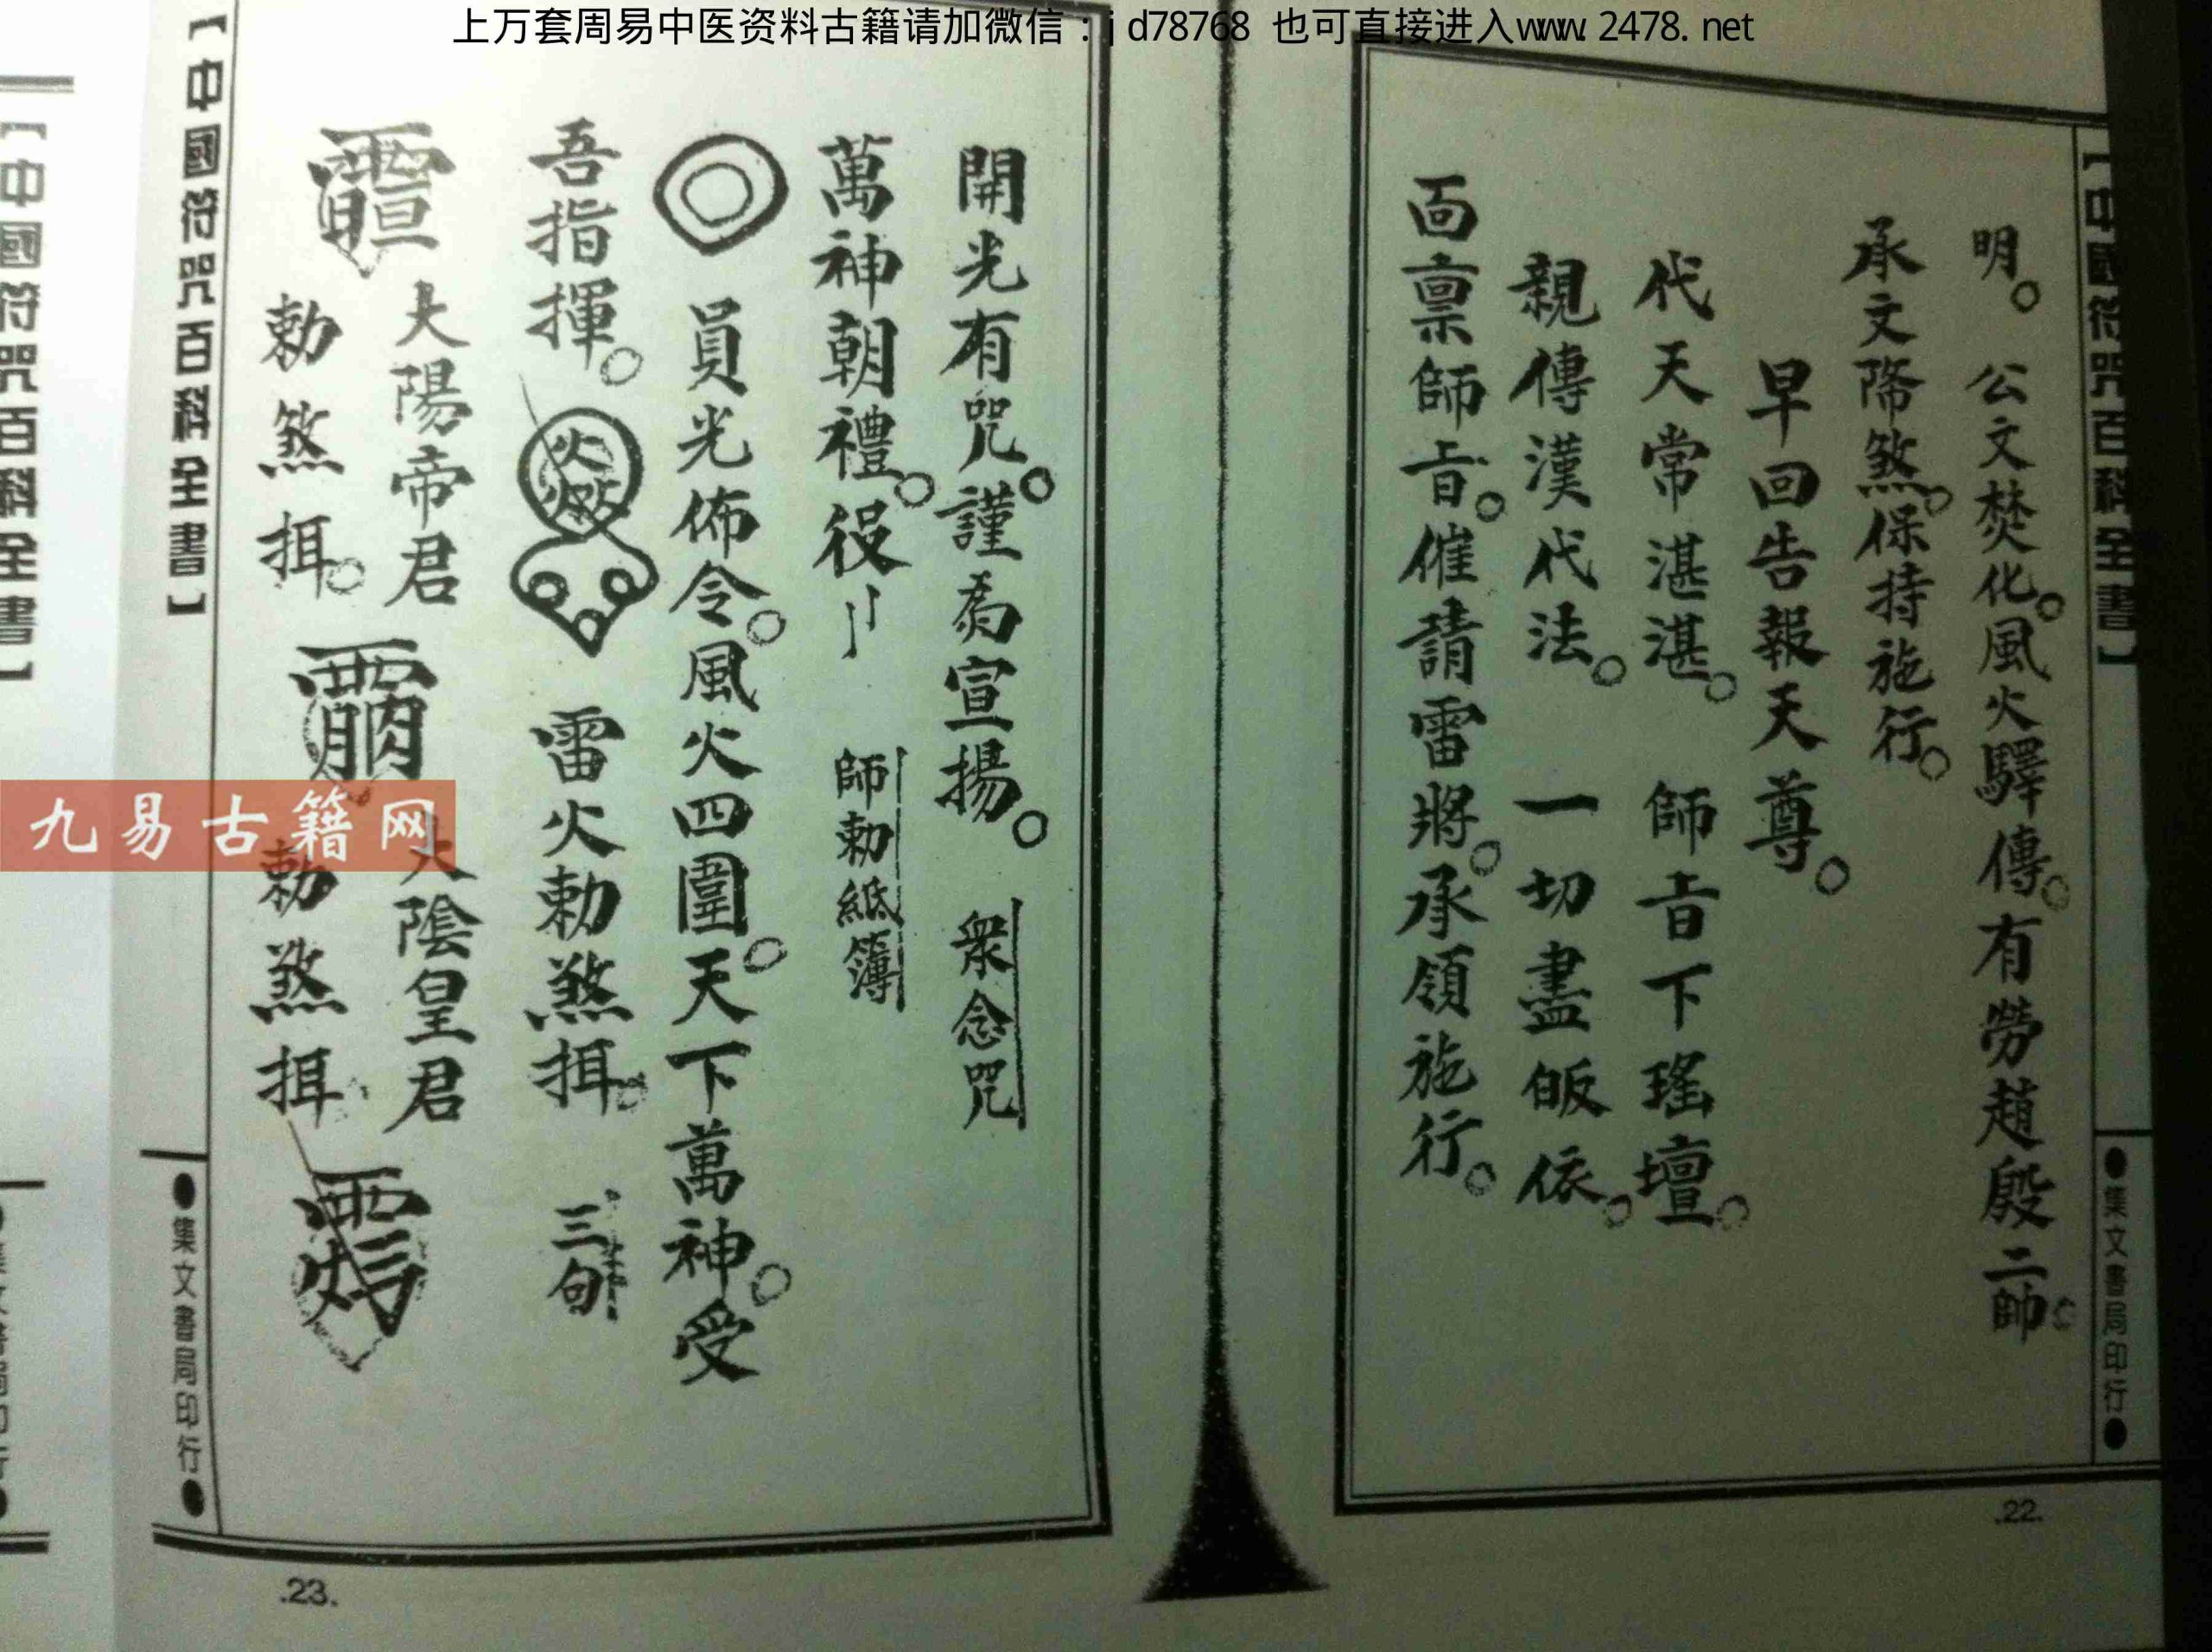 上万套周易中医资料古籍请加微信：jd78768 也可直接进入www.2478.net
【中國符咒百科全書】
●集文書局印行●
明。公文焚化。風火驛傳。有勞趙殷二帥。
承文降煞。保持施行。
早回告報天尊。
代天常湛湛。師旨下瑤壇。
親傳漢代法。一切盡皈依。
面禀師旨。催請雷將。承領施行。
.22.
開光有咒。謹為宣揚。衆念咒
萬神朝禮。役
師勅紙簿
員光佈令。風火四圍。天下萬神。受
吾指揮。雷火勅煞揖。三句
大陽帝君
勅煞揖。
大陰皇君
勅煞揖。
【中國符咒百科全書】
●集文書局印行●
.23.
九易古籍网
【中國符咒百科全書】